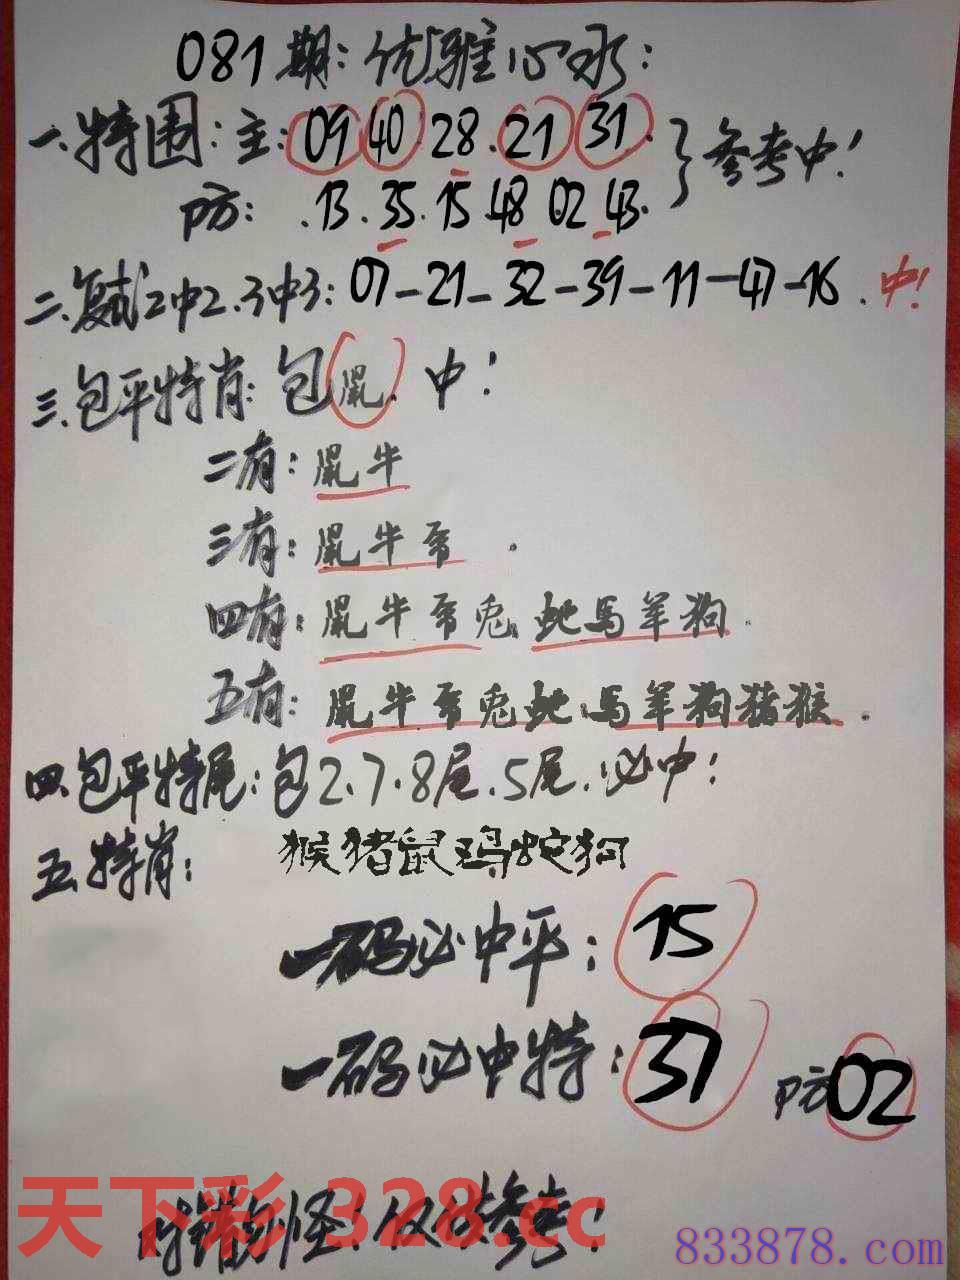 081期:优雅心水:
一.特围:主:09 40 28.21 31.
防:.13.35.15.48 02 43.
}参考中!
二.复式2中2.3中3:07-21-32-39-11-47-16.中!
三.包平特肖:包鼠.中!
二有:鼠牛
三有:鼠牛帝.
四有:鼠牛帝兔蛇马羊狗.
五有:鼠牛帝兔蛇马羊狗猪猴.
四.包平特尾:包2.7.8尾.5尾.必中!
五.特肖:猴猪鼠鸡蛇狗
一码必中平:15
一码必中特:37 防02
错勿怪!仅供参考!
天下彩 328.cc
833878.com